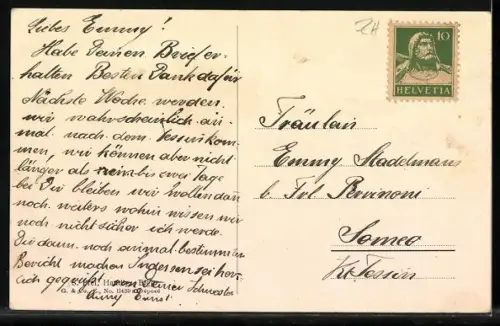 Liebes Emmy!
Habe Deinen Brief er-
halten Besten Dank dafür
Nächste Woche werden
wir wahrscheinlich ein-
mal nach dem kom-
men, wir können aber nicht
länger als ein bis zwei Tage
bei Dir bleiben wir wollen dan
noch weiters wohin wissen wir
noch nicht sicher ich werde
Dir dann noch einmal bestimmten
Bericht machen sei herz
lich gegrüsst von deiner Schwester
Ernst
HELVETIA
10
Fräulein
Emmy Stadelmann
b. Frl.
Someo
Kt. Tessin